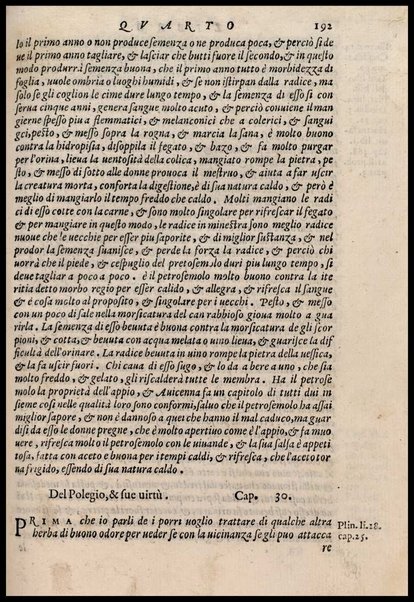 QVARTO 192
lo il primo anno o non produce semenza o ne produca poca, & perciò si de
ue il primo anno tagliare, & lasciar che butti fuore il secondo, & in questo
modo produrrà semenza buona, che il primo anno tutto è morbidezza di
foglia, uuole ombria o luoghi humidi, & se non istirpan dalla radice, ma
solo se gli coglion le cime dure lungo tempo, & la semenza di esso si con
serua cinque anni, genera sangue molto acuto, & perciò conuiene il man
gierne spesso piu a flemmatici, & melanconici che a colerici, & sangui
gci, pesto, & messo sopra la rogna, & marcia la sana, è molto buono
contra la hidropisia, disoppila il fegato, & bazo, & fa molto purgar
per l'orina, lieua la uentosità della colica, mangiato rompe la pietra, pe
sto, & messo di sotto alle donne prouoca il mestruo, & aiuta a far uscir
la creatura morta, conforta la digestione, è di sua natura caldo, & però è
meglio di mangiarlo il tempo freddo che caldo. Molti mangiano le radi
ci di esso cotte con la carne, & sono molto singolar per rifrescar il fegato
& per mangiare in questo modo, le radice in minestra sono meglio radice
nuoue che le uecchie per esser piu saporite, & di miglior sustanza, & nel
prodor la semenza suanisce, & perde la forza la radice, & perciò chi
uorrà che il piede, & cespuglio del pretosem. lo duri piu lungo tempo, si
deue tagliar a poco a poco. è il petrosemolo molto buono contra la ite
ritia detto morbo regio per esser calido, & allegra, & rifresca il sangue
& è cosa molto al proposito, & singolare per i uecchi. Pesto, & messo
con un poco di sale nella morsicatura del can rabbioso gioua molto a gua
rirla. La semenza di esso beuuta è buona contra la morsicatura de gli scor
pioni, & cotta, & beuuta con acqua melata o uino lieua, & guarisce la dif
ficultà dell'orinare. La radice beuuta in uino rompe la pietra della uessica,
& la fa uscir fuori. Chi caua di esso sugo, & lo da a bere a uno, che sia
molto freddo, & gelato, gli riscalderà tutte le membra. Ha il petrose
molo la proprietà dell'appio, & Auicenna fa un capitolo di tutti dui in
sieme così nelle qualità loro sono conformi, saluo che il petrosemolo ha assai
miglior sapore, & non è dannoso a quei che hanno il mal caduco, ma guar
disi da esso le donne pregne, che è molto apertiuo come è l'appio, & fa muo
uere, rifresca molto il petrosemolo con le uiuande, & la sua salsa è appeti
tosa, fatta con aceto e buona per i tempi caldi, & rifresca, che l'aceto tor
na frigido, essendo di sua natura caldo.
Del Polegio, & sue uirtù. Cap. 30.
PRIMA che io parli de i porri uoglio trattare di qualche altra
herba di buono odore per ueder se con la uicinanza se gli puo attacca
re
Plin. li. 28.
cap. 25.